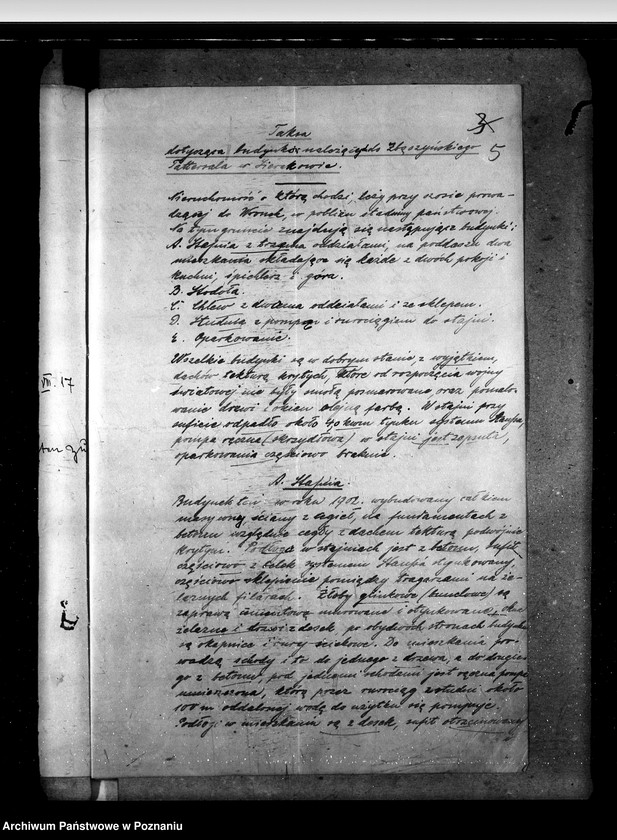 3
5
Taksa
dotycząca budynków należących do Zbąszyńskiego
Tattersala w Sierakowie.
Nieruchomość o którą chodzi, leży przy szosie prowa-
dzącej do Wronek, w pobliżu stadniny państwowej.
Na tym gruncie znajdują się następujące budynki:
A. Stajnia z trzema oddziałami, na poddaszu dwa
mieszkania składające się każde z dwóch pokoji i
kuchni, śpichlerz i góra.
B. Stodoła.
C. Chlew z dwoma oddziałami i ze sklepem.
D. Studnia z pompą i rurociągiem do stajni.
E. Oparkowanie.
Wszelkie budynki są w dobrym stanie, z wyjątkiem,
dachów tekturą krytych, które od rozpoczęcia wojny
światowej nie były smołą posmarowane, oraz pomalo-
wanie drzwi i okien olejną farbą. W stajni przy
suficie odpadło około 40 kwm tynku systemu Staupa,
pompa ręczna (skrzydłowa) w stajni jest zepsuta,
oparkowania częściowo braknie.
A. Stajnia.
Budynek ten w roku 1902. wybudowany całkiem
masywnej ściany z cegieł, na fundamentach z
betonu względnie cegły z dachem tekturą podwójnie
krytym. Podłoga w stajniach jest z betonu, sufit
częściowo z belek systemem Staupa otynkowany,
częściowo sklepienie pomiędzy tragarzami na że-
laznych filarach. Żłoby glinkowe są
zaprawą cementową murowane i otynkowane,
żelazne i drzwi z desek, po obydwóch stronach budynku
są okapnice i rury ściekowe. Do mieszkania pro-
wadzą schody i to do jednego z drzewa, a do drugie-
go z betonu, pod jednemi schodami jest ręczna pompa
umieszczona, którą przez rurociąg z studni około
100 m oddalonej wodę do użytku się pompuje.
Podłogi w mieszkaniu są z desek, sufit otrzcinowany
VIII. 17
Archiwum Państwowe w Poznaniu